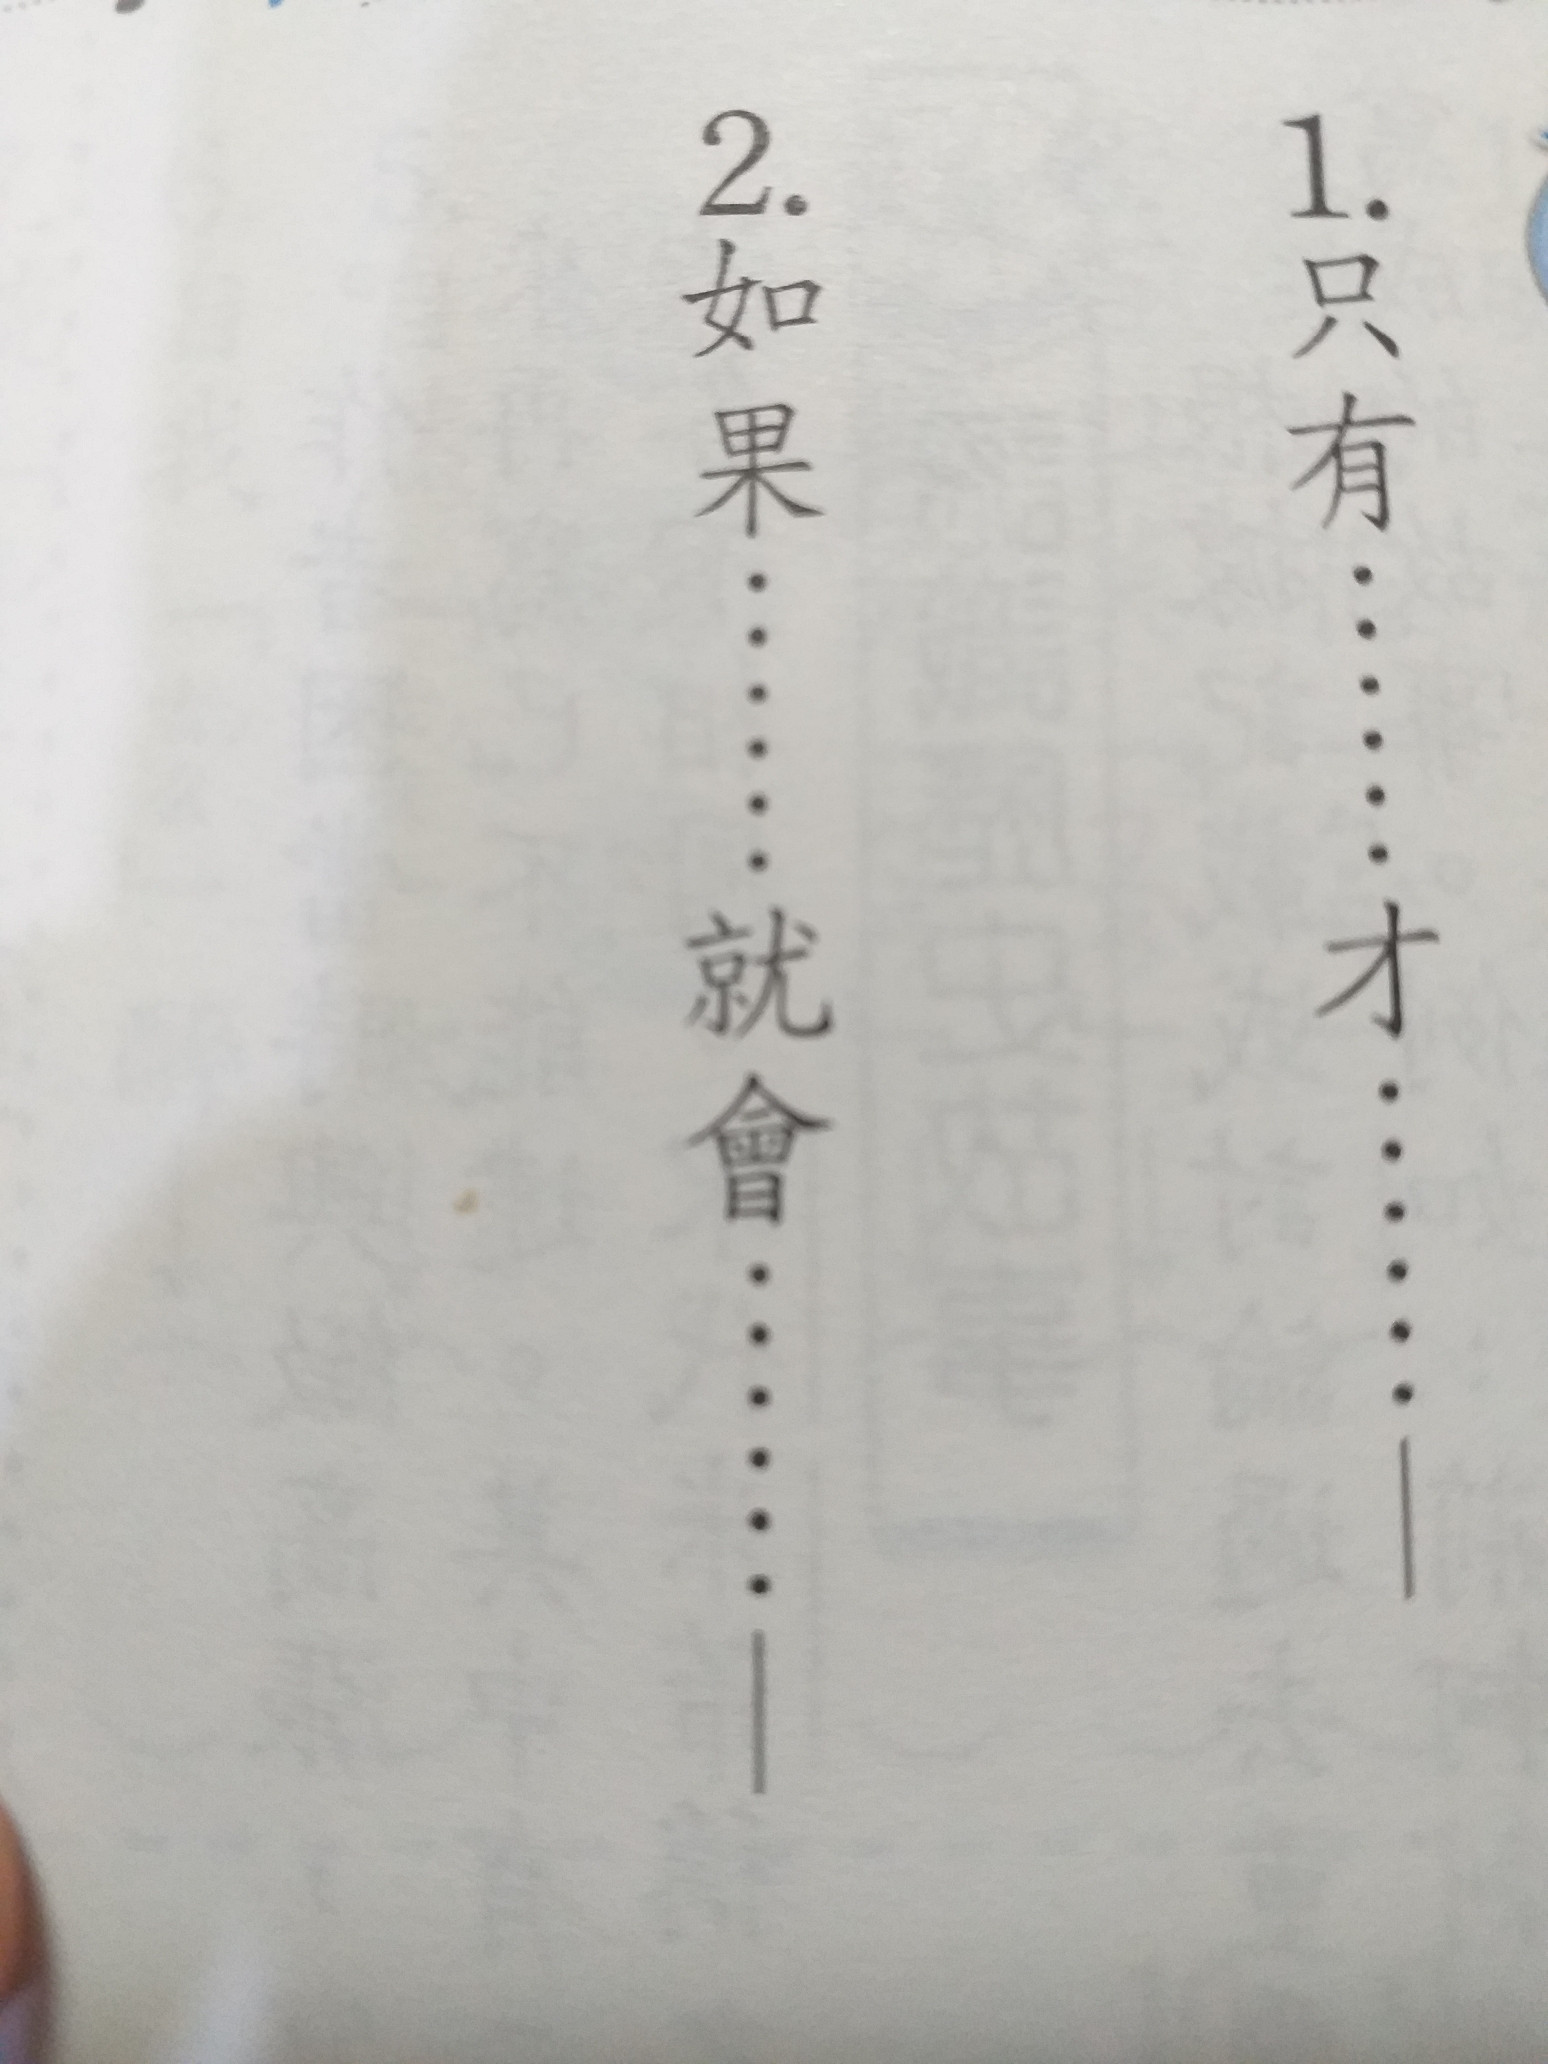 1.只有……才……—
2.如果……就會……—